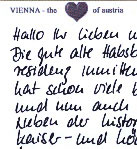 VIENNA - the of austria
Hallo Ihr lieben
Die gute alte Habsb
residenz inmitten
hat schon viele b
und nun auch
neben der histor
kaiser- und kö